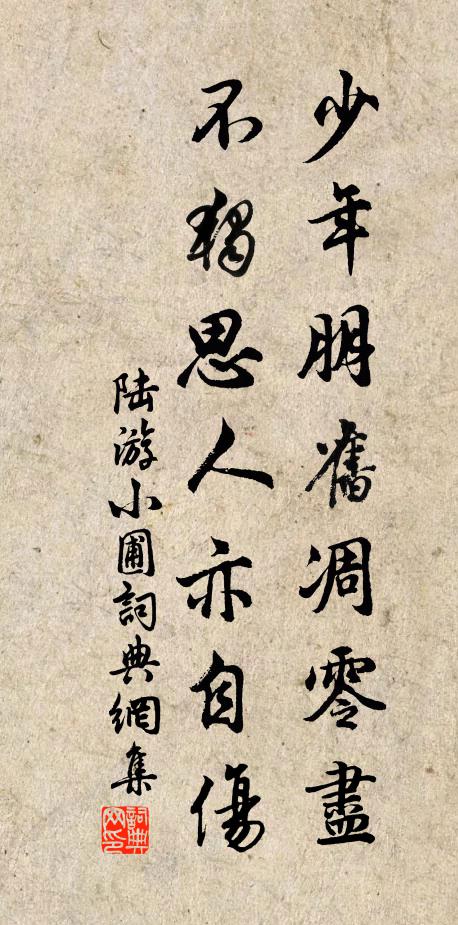 少年朋舊凋零盡
不獨思人亦自傷
陆游小圃詞典網集
詞典网印